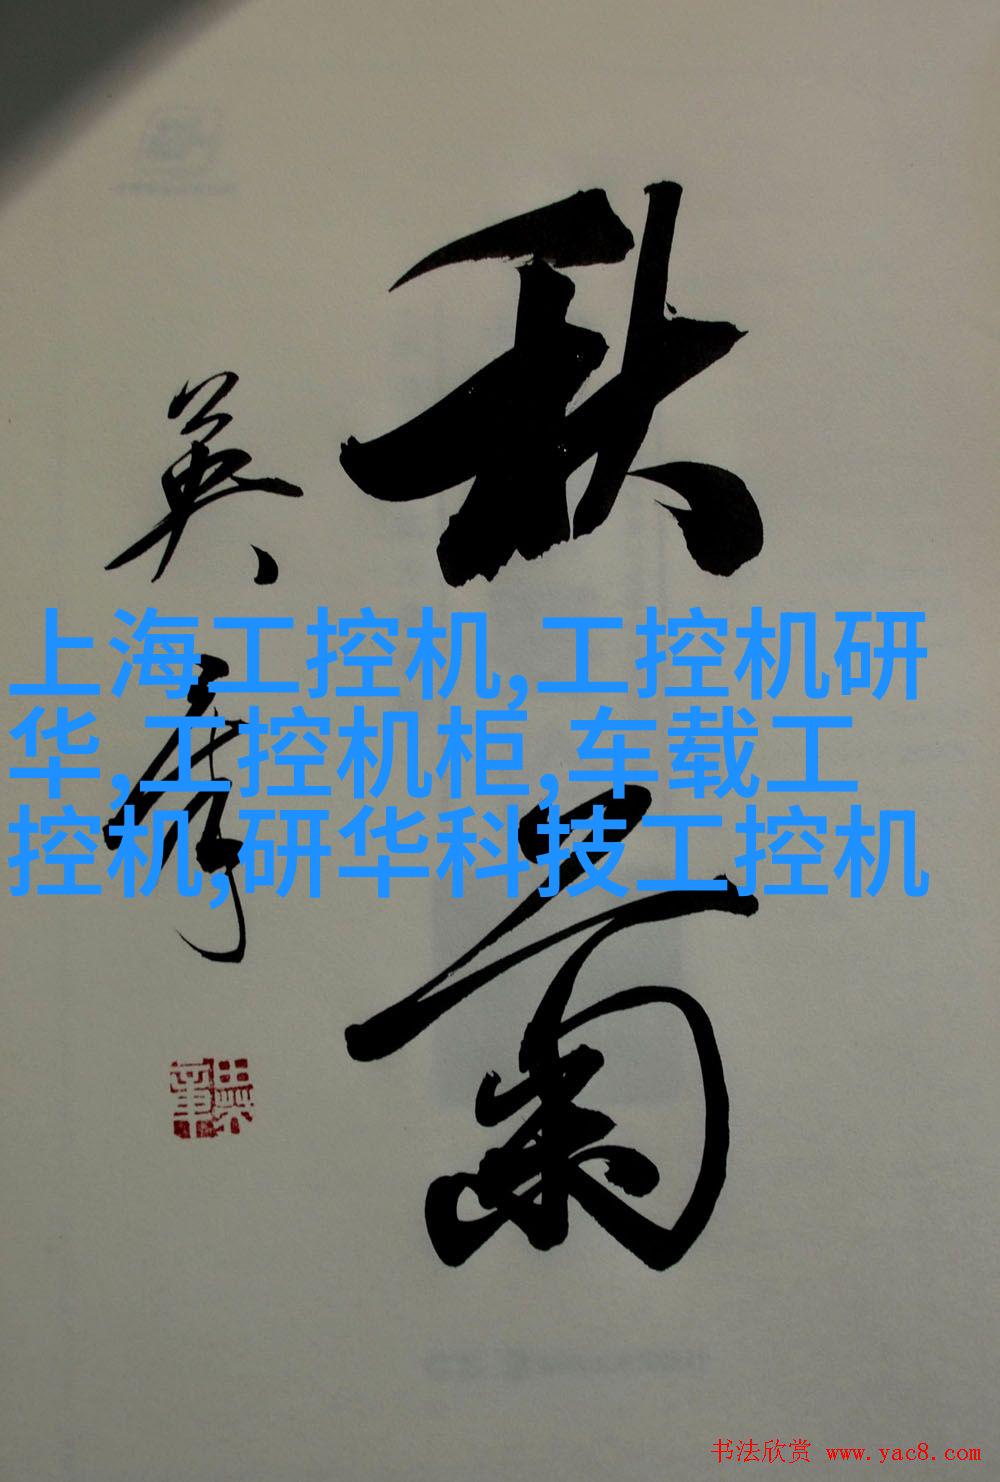 秋菊
英章
田英章
上海工控机,工控机研
华,工控机柜,车载工
控机,研华科技工控机
书法欣赏 www.yac8.com